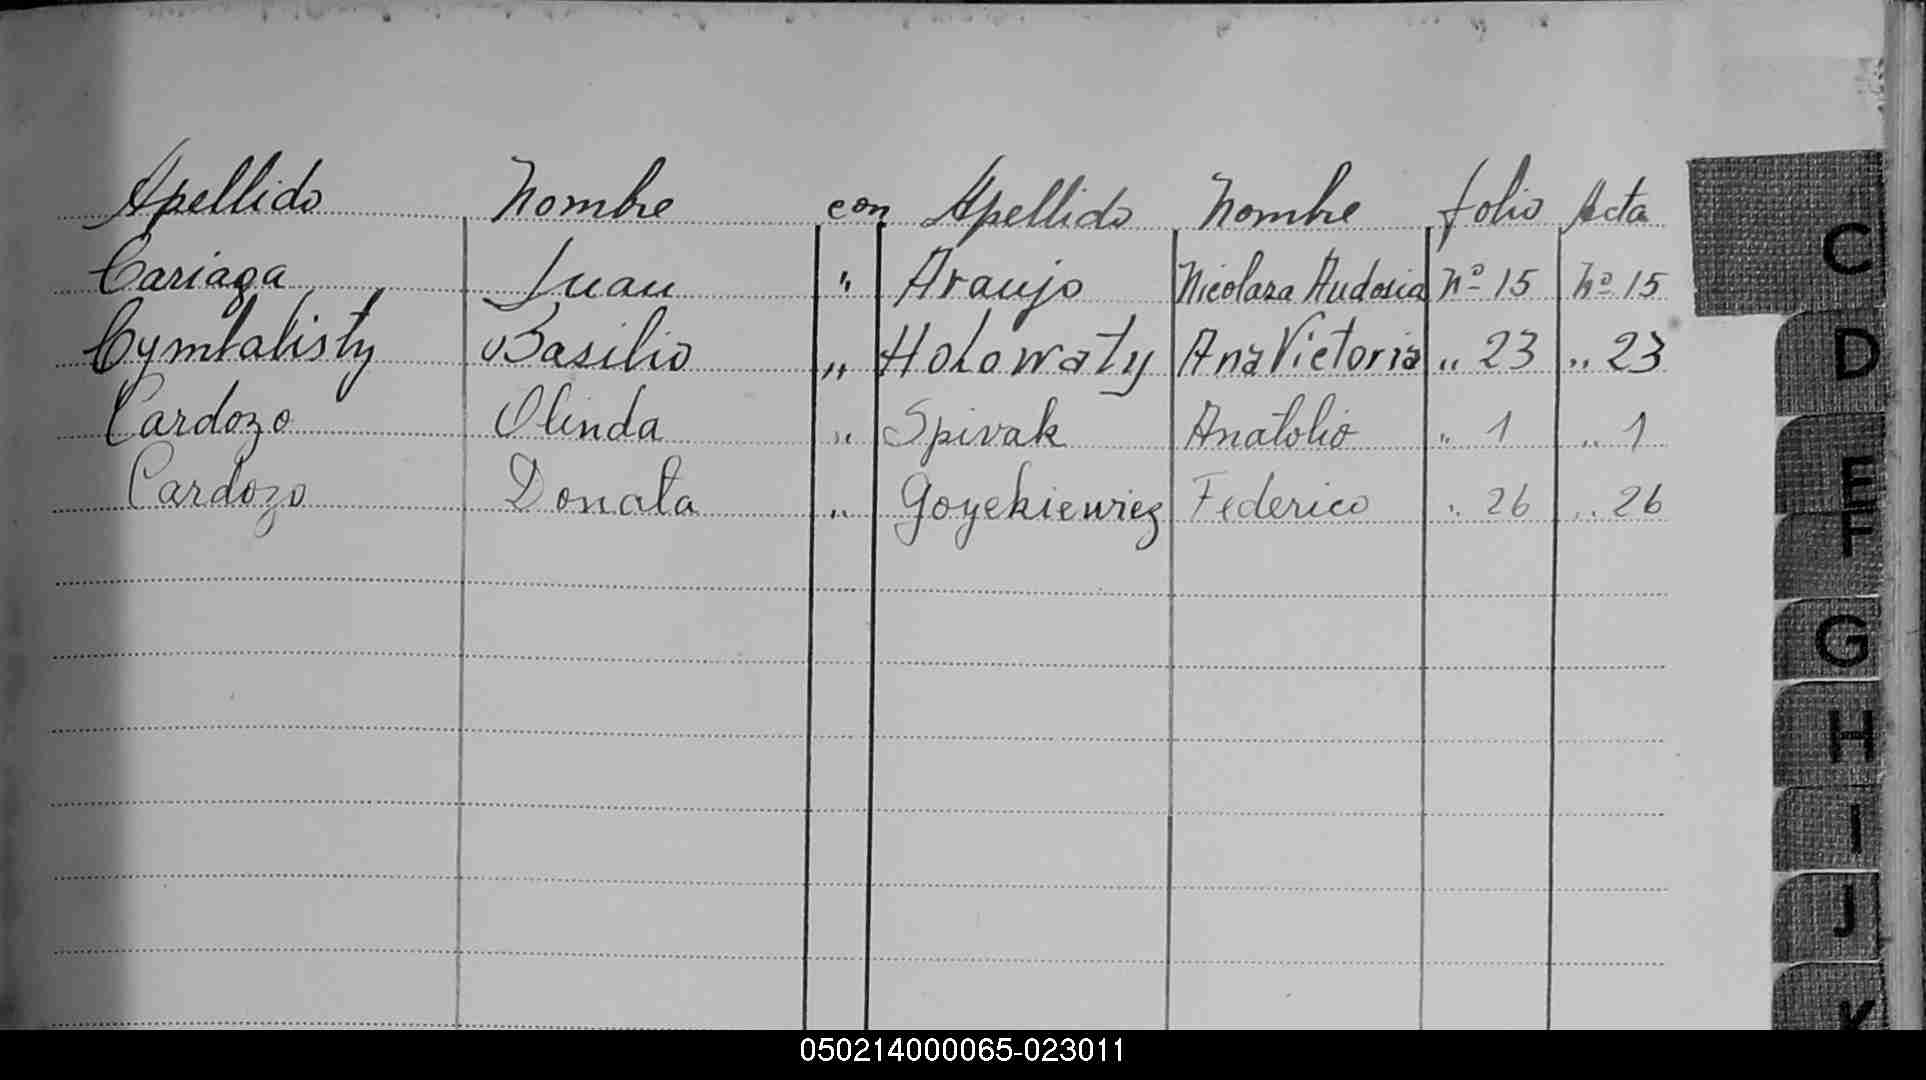 Apellido Nombre con Apellido Nombre folio Acta
Cariaga Juan " Araujo Nicolaza Audosia Nº 15 Nº 15
Cymbalisty Basilio " Holowaty Ana Victoria " 23 " 23
Cardozo Olinda " Spivak Anatolio " 1 " 1
Cardozo Donata " Goyekiewiez Federico " 26 " 26
C
D
E
F
G
H
I
J
K
050214000065-023011